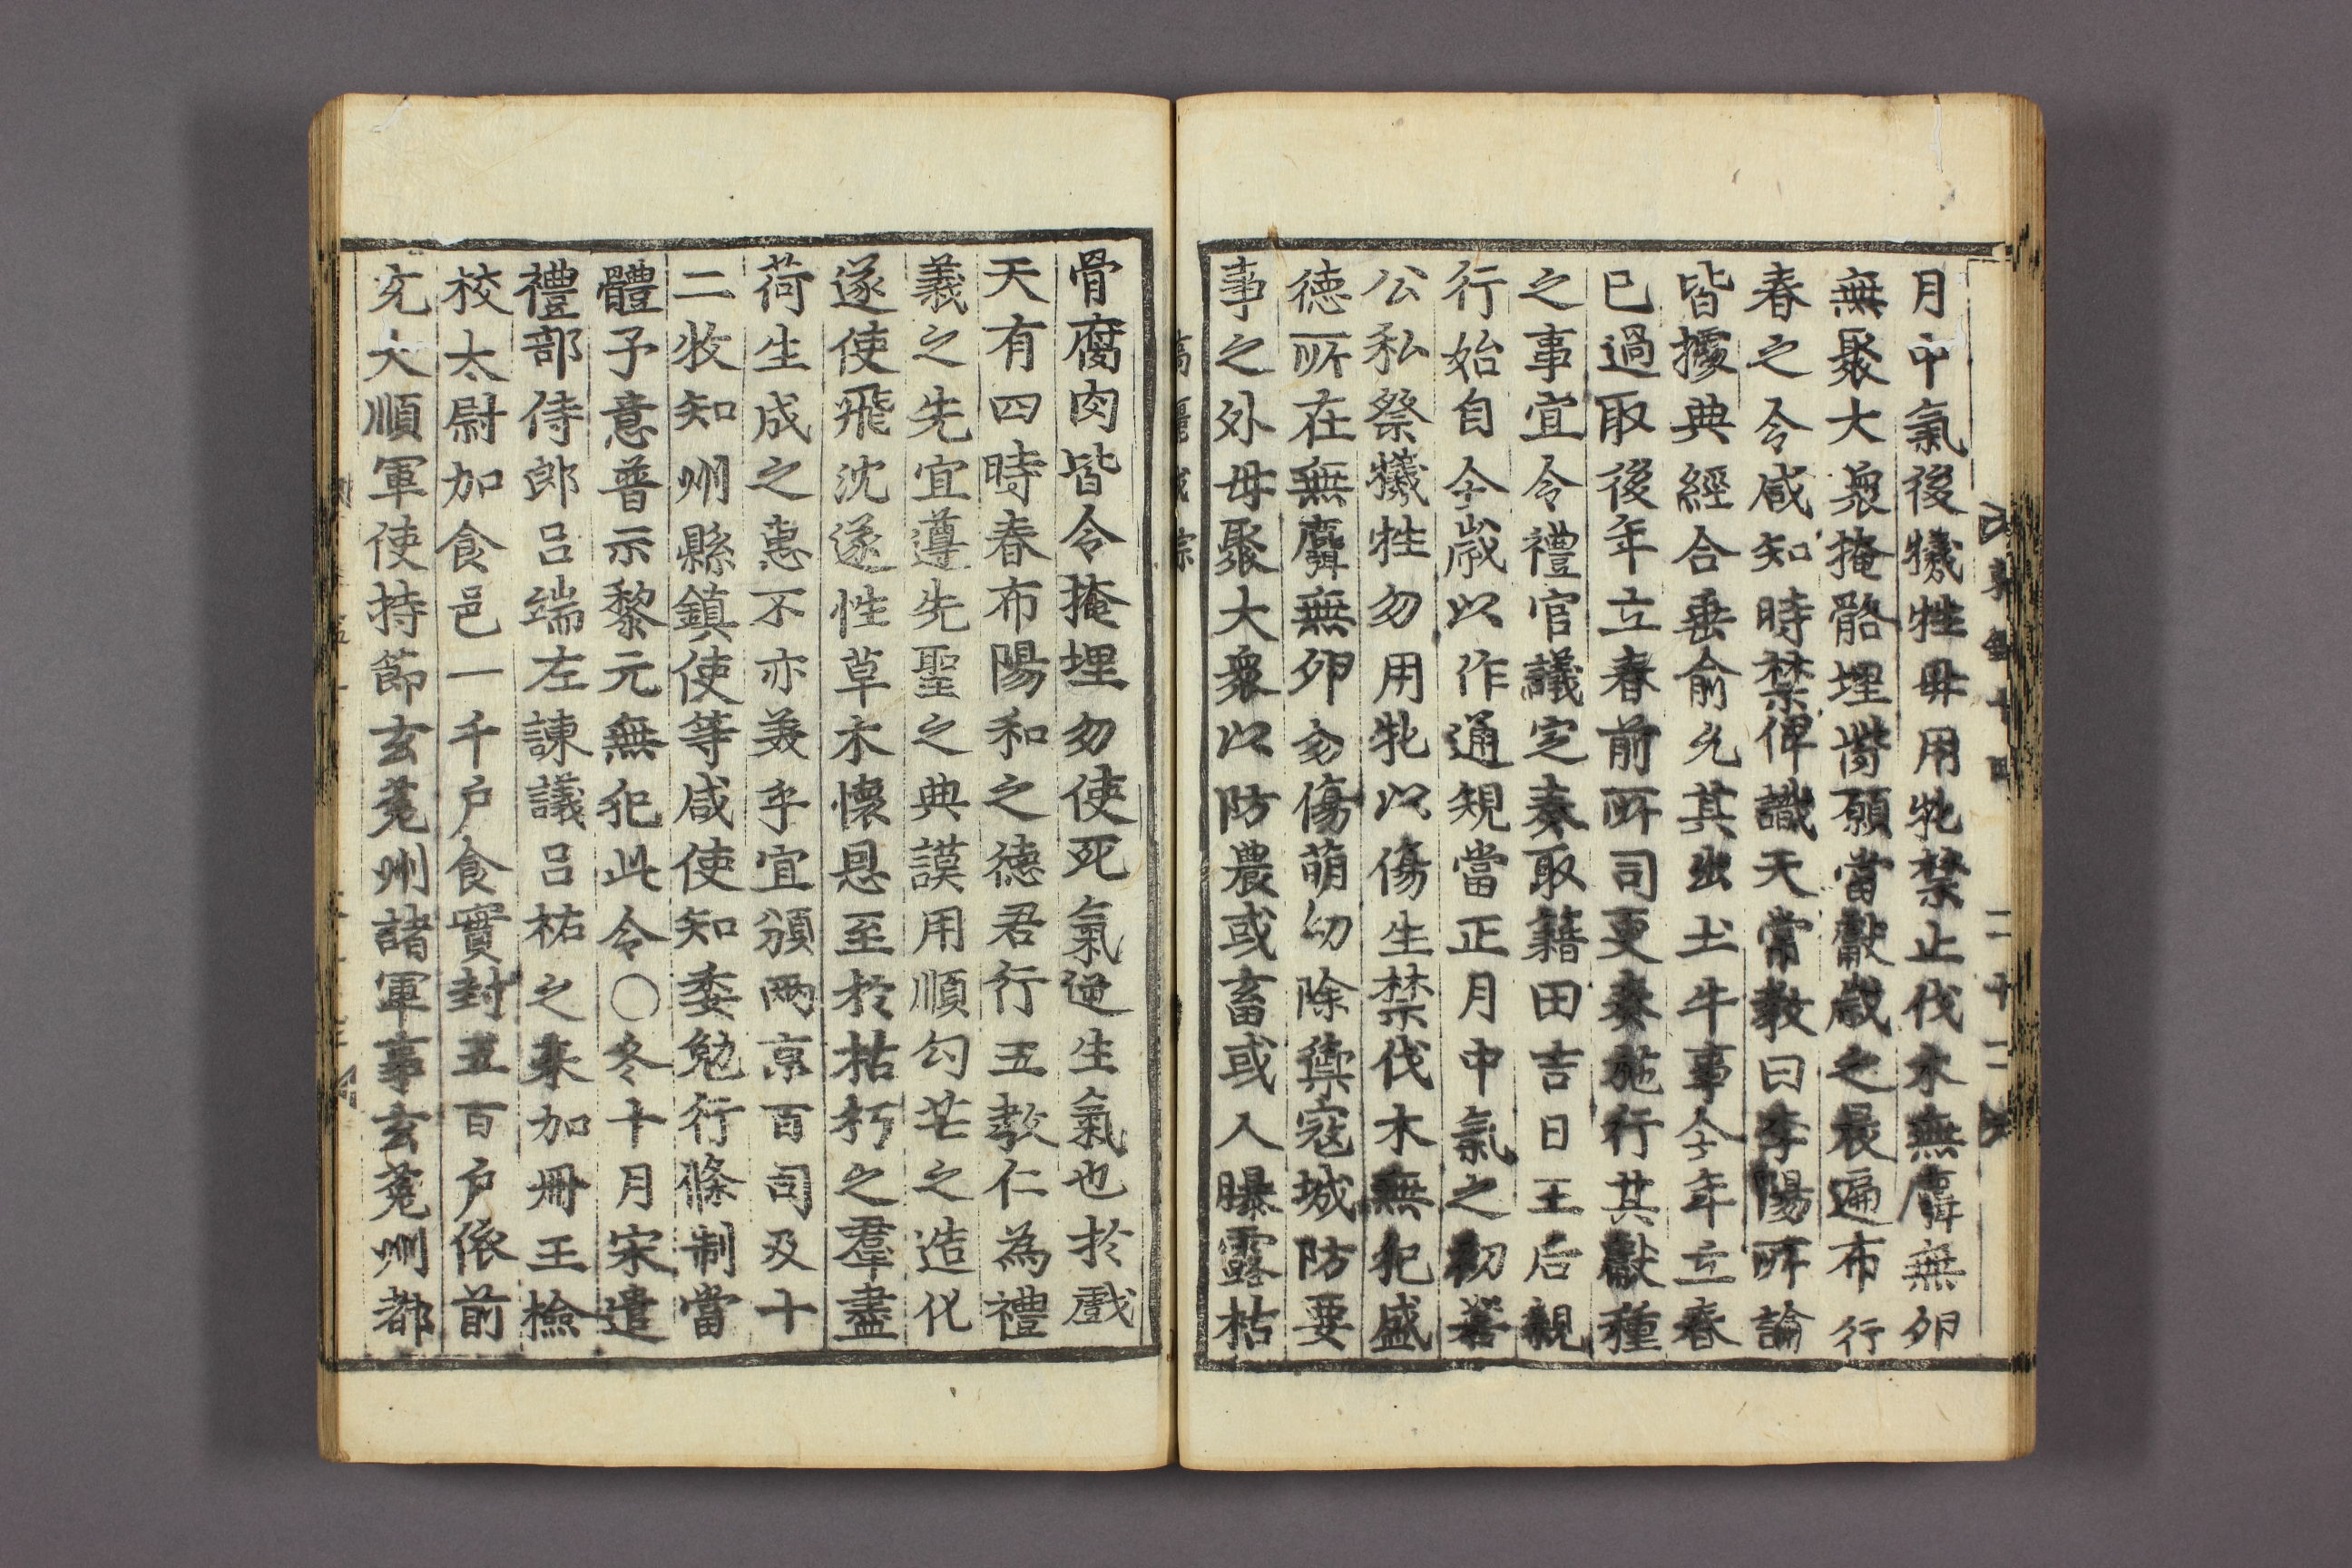 月中氣後犧牲毋用牝禁止伐木無麛無卵
無聚大衆掩骼埋胔願當獻歲之晨遍布行
春之令咸知時禁俾識天常敎曰李陽所論
皆據典經合垂俞允其出土牛事今年立春
已過取後年立春前所司更奏施行其獻種
之事宜令禮官議定奏取籍田吉日王后親
行始自今歲以作通規當正月中氣之初若
公私祭犧牲勿用牝以傷生禁伐木無犯盛
德所在無麛無卵勿傷萌幼除禦寇城防要
事之外毋聚大衆以防農或畜或人曝露枯
骨腐肉皆令掩埋勿使死氣逆生氣也於戲
天有四時春布陽和之德君行五敎仁為禮
義之先宜遵先聖之典謨用順勾芒之造化
遂使飛沈遂性草木懷恩至於枯朽之羣盡
荷生成之惠不亦美乎宜頒兩京百司及十
二牧知州縣鎭使等咸使知委勉行條制當
體予意普示黎元無犯此令〇冬十月宋遣
禮部侍郎呂端左諫議呂祐之來加冊王檢
校太尉加食邑一千戶食實封五百戶依前
充大順軍使持節玄菟州諸軍事玄菟州都